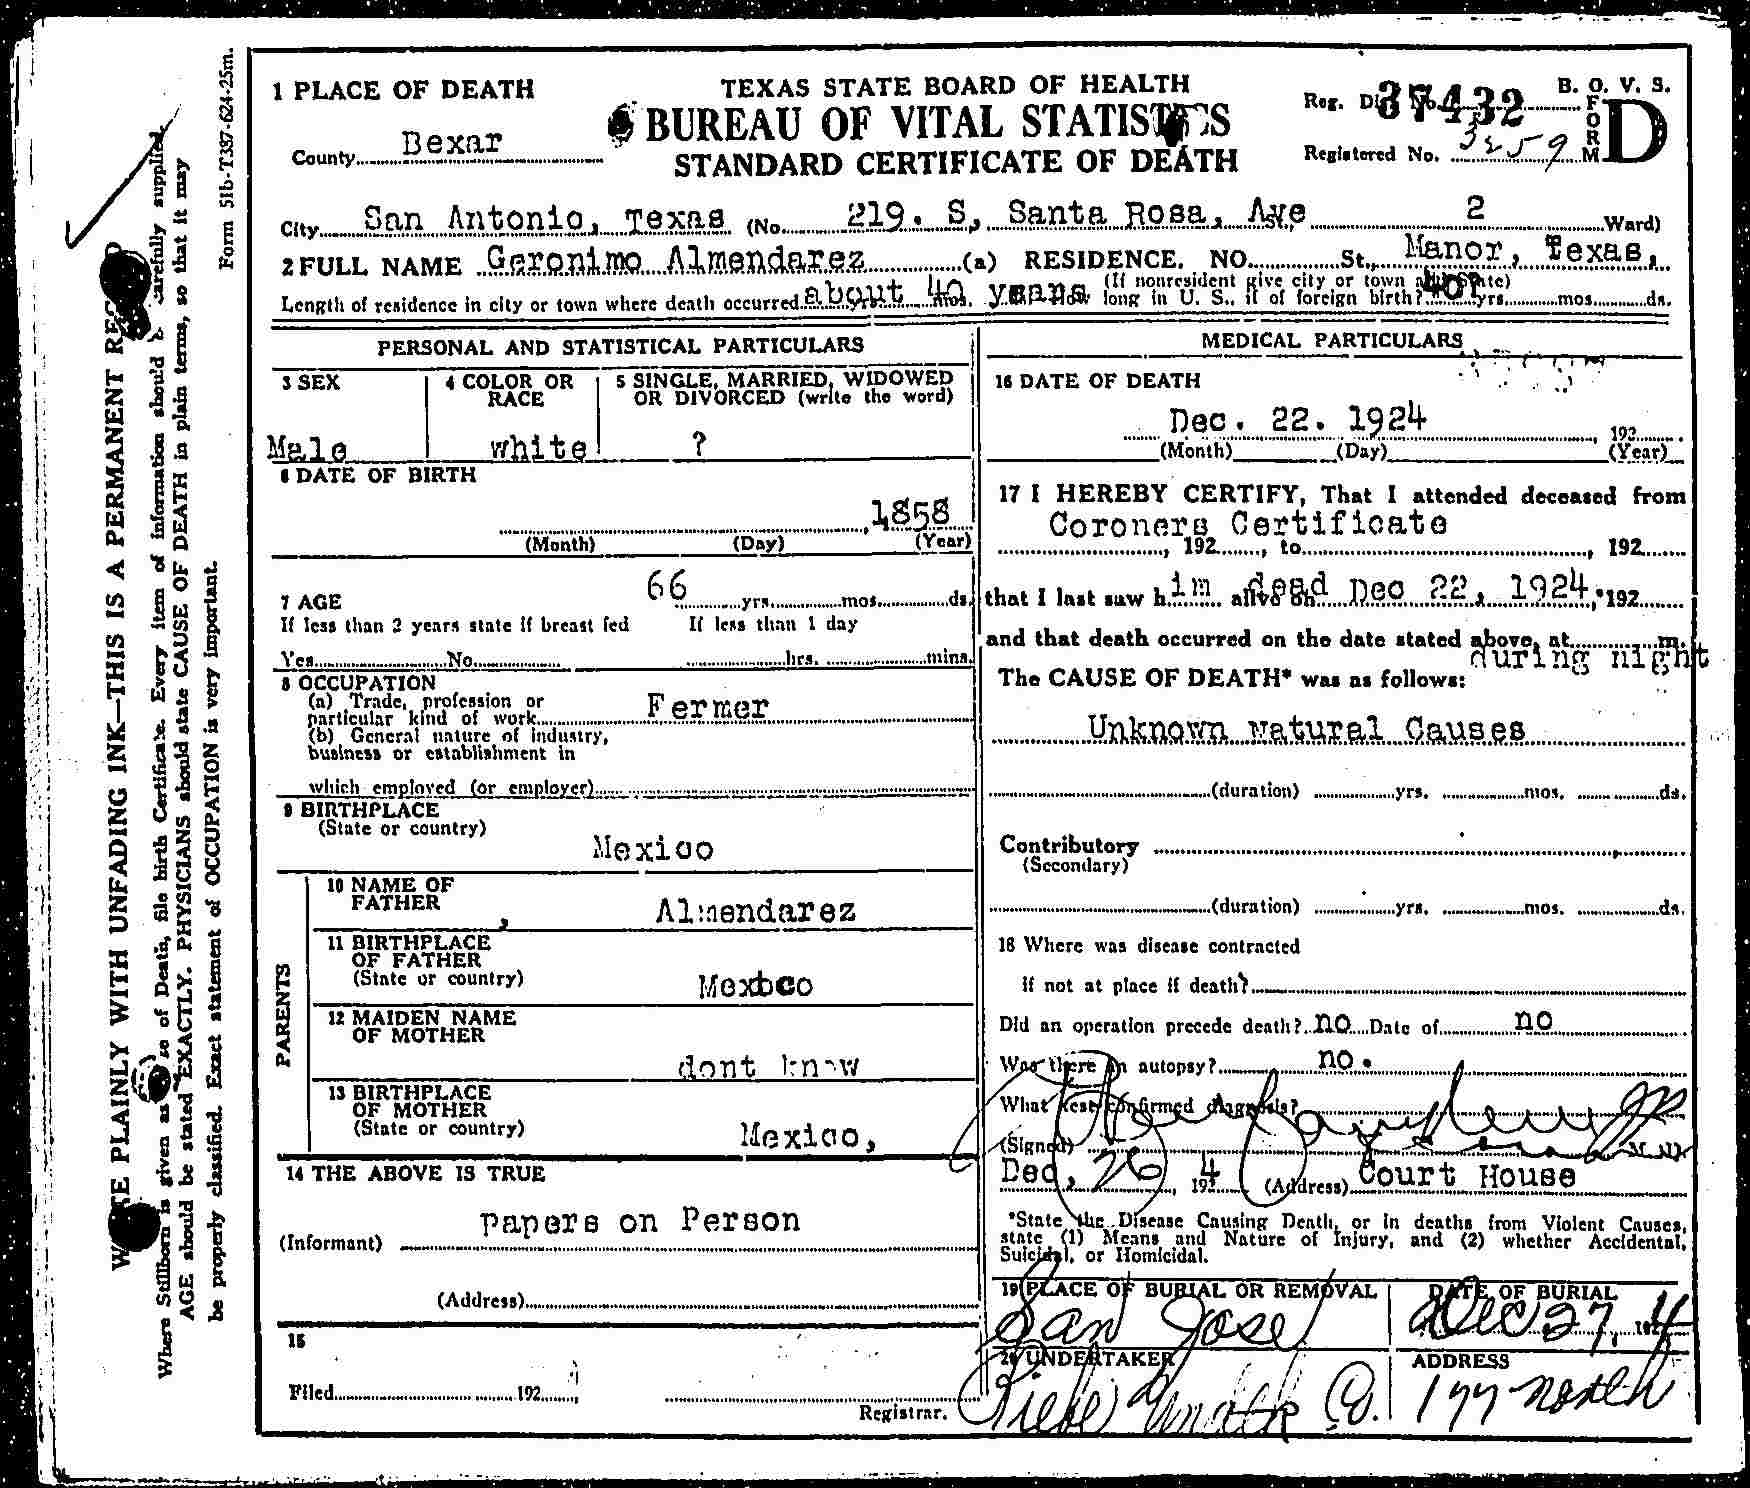 Form 51b-T387-624-25m.
PLAINLY WITH UNFADING INK—THIS IS A PERMANENT
Where Stillborn is given as of Death, file birth Certificate. Every item of information should carefully supplied.
AGE should be stated EXACTLY. PHYSICIANS should state CAUSE OF DEATH in plain terms, so that it may
be properly classified. Exact statement of OCCUPATION is very important.
1 PLACE OF DEATH
County Bexar
TEXAS STATE BOARD OF HEALTH
BUREAU OF VITAL STATISTICS
STANDARD CERTIFICATE OF DEATH
B. O. V. S.
FORM D
Reg. Dis. No. 37432
Registered No. 3259
City San Antonio, Texas (No. 219. S, Santa Rosa, Ave St., 2 Ward)
2 FULL NAME Geronimo Almendarez (a) RESIDENCE. NO. St., Manor, Texas,
(If nonresident give city or town and State)
Length of residence in city or town where death occurred about 40 years How long in U. S., if of foreign birth? 40 yrs. mos. ds.
PERSONAL AND STATISTICAL PARTICULARS
3 SEX
Male
4 COLOR OR RACE
white
5 SINGLE, MARRIED, WIDOWED OR DIVORCED (write the word)
?
6 DATE OF BIRTH
, 1858
(Month) (Day) (Year)
7 AGE 66 yrs. mos. ds.
If less than 2 years state if breast fed If less than 1 day
Yes No hrs. mins.
8 OCCUPATION
(a) Trade, profession or
particular kind of work Fermer
(b) General nature of industry,
business or establishment in
which employed (or employer)
9 BIRTHPLACE
(State or country)
Mexico
PARENTS
10 NAME OF FATHER Almendarez
11 BIRTHPLACE OF FATHER
(State or country) Mexico
12 MAIDEN NAME OF MOTHER
dont know
13 BIRTHPLACE OF MOTHER
(State or country) Mexico,
14 THE ABOVE IS TRUE
(Informant) Papers on Person
(Address)
15
Filed 192
Registrar.
MEDICAL PARTICULARS
16 DATE OF DEATH
Dec. 22. 1924 192
(Month) (Day) (Year)
17 I HEREBY CERTIFY, That I attended deceased from
Coroners Certificate
, 192 , to , 192
that I last saw him alive on dead Dec 22, 1924, 192
and that death occurred on the date stated above, at m.
during night
The CAUSE OF DEATH* was as follows:
Unknown Natural Causes
(duration) yrs. mos. ds.
Contributory
(Secondary)
(duration) yrs. mos. ds.
18 Where was disease contracted
if not at place if death?
Did an operation precede death? no Date of no
Was there an autopsy? no.
What test confirmed diagnosis?
(Signed) M. D.
Dec, 26, 1924 (Address) Court House
*State the Disease Causing Death, or in deaths from Violent Causes,
state (1) Means and Nature of Injury, and (2) whether Accidental,
Suicidal, or Homicidal.
19 PLACE OF BURIAL OR REMOVAL
San Jose
DATE OF BURIAL
Dec 27, 1924
20 UNDERTAKER
Co.
ADDRESS
177 North